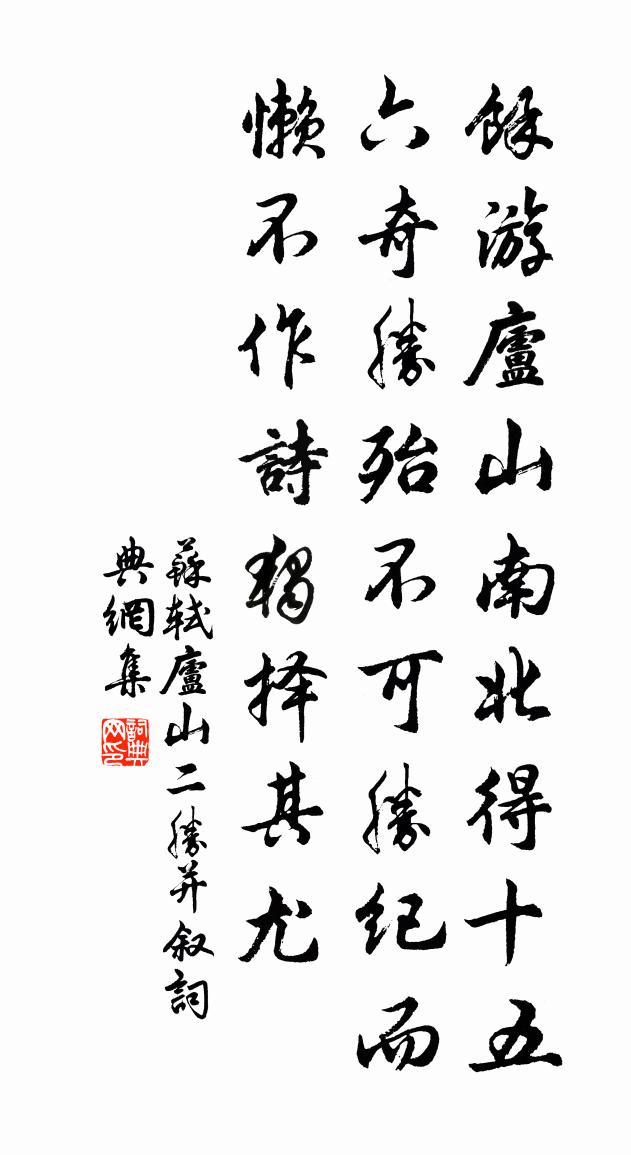 餘游廬山南北得十五
六奇勝殆不可勝紀而
懶不作詩獨择其尤
蘇軾廬山二勝并叙詞
典網集
詞典
网印